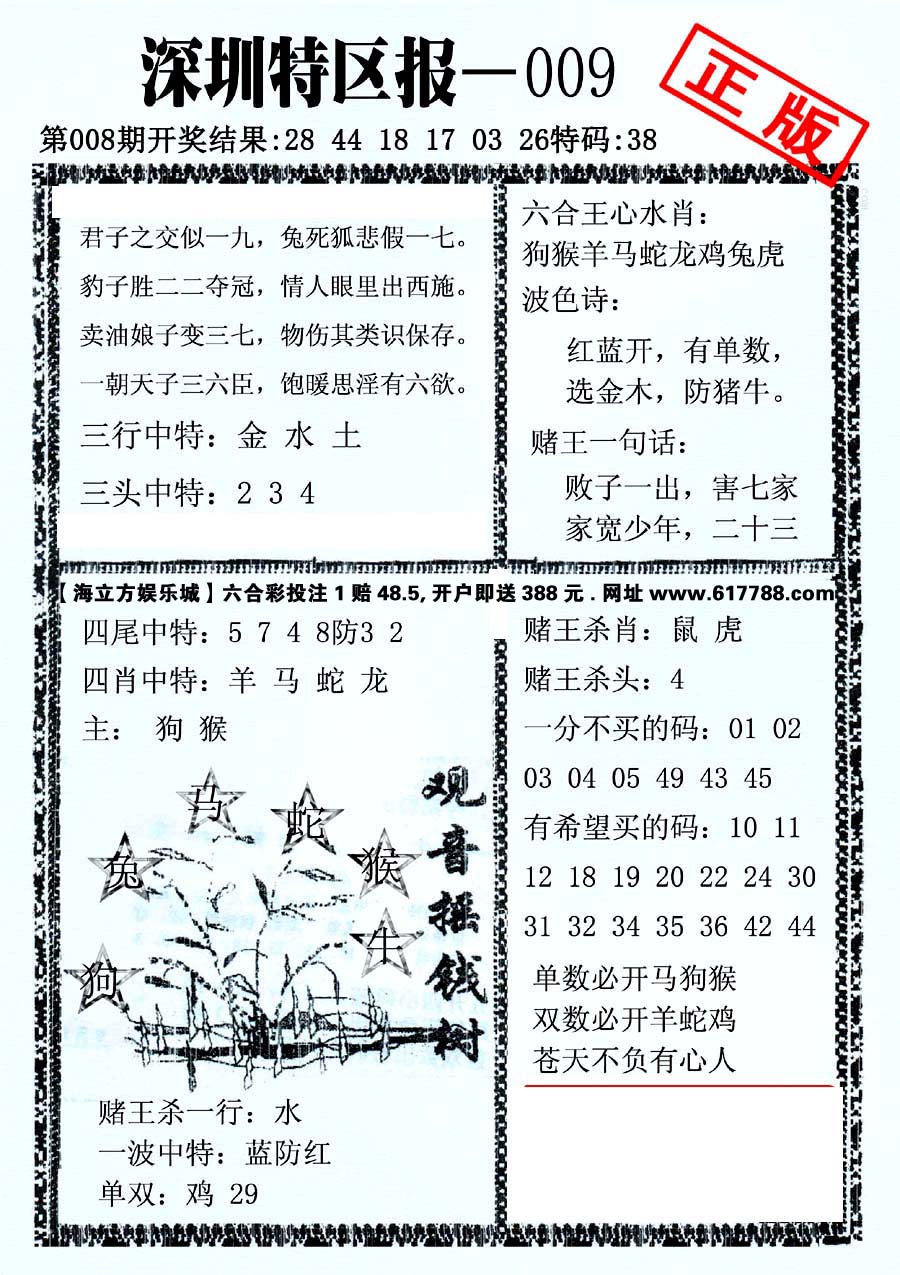 深圳特区报—009
正版
第008期开奖结果:28 44 18 17 03 26特码:38
君子之交似一九，兔死狐悲假一七。
豹子胜二二夺冠，情人眼里出西施。
卖油娘子变三七，物伤其类识保存。
一朝天子三六臣，饱暖思淫有六欲。
三行中特：金 水 土
三头中特：2 3 4
六合王心水肖：
狗猴羊马蛇龙鸡兔虎
波色诗：
红蓝开，有单数，
选金木，防猪牛。
赌王一句话：
败子一出，害七家
家宽少年，二十三
【海立方娱乐城】六合彩投注1赔48.5,开户即送388元.网址www.617788.com
四尾中特：5 7 4 8防3 2
四肖中特：羊 马 蛇 龙
主： 狗 猴
马
蛇
兔
猴
牛
狗
观音摇钱树
赌王杀一行：水
一波中特：蓝防红
单双：鸡 29
赌王杀肖：鼠 虎
赌王杀头：4
一分不买的码：01 02
03 04 05 49 43 45
有希望买的码：10 11
12 18 19 20 22 24 30
31 32 34 35 36 42 44
单数必开马狗猴
双数必开羊蛇鸡
苍天不负有心人